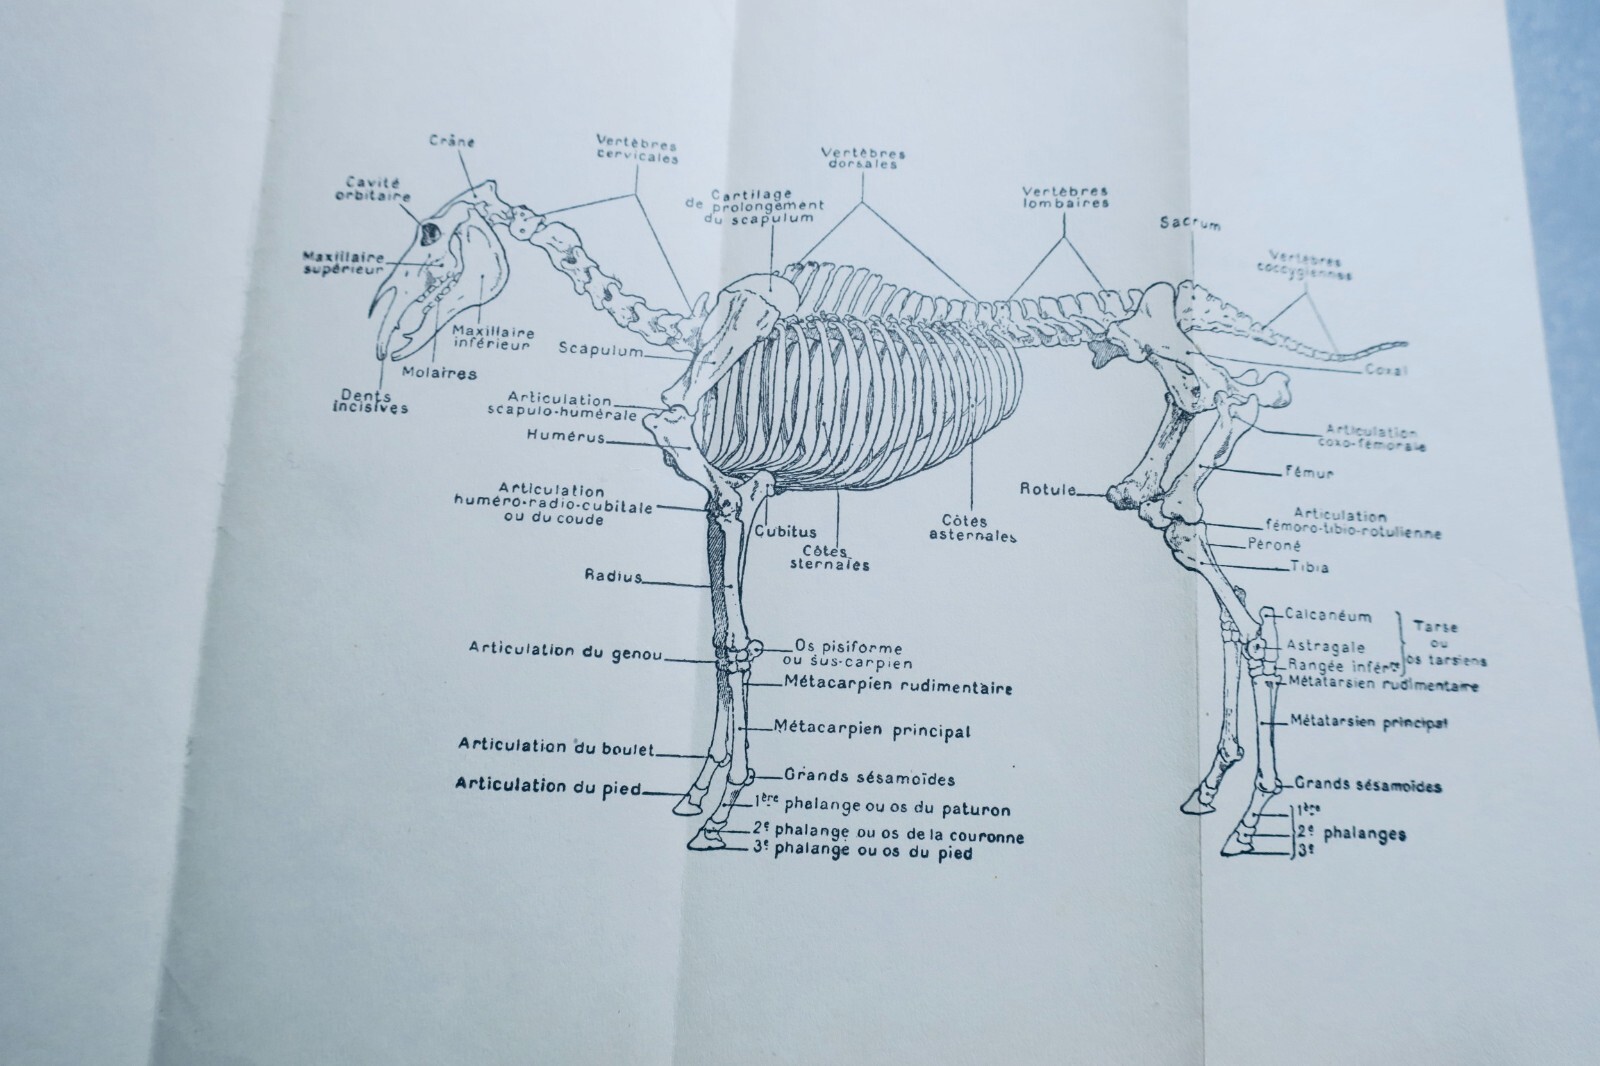 Crâne
Vertèbres
cervicales
Vertèbres
dorsales
Cavité
orbitaire
Cartilage
de prolongement
du scapulum
Vertèbres
lombaires
Sacrum
Vertèbres
coccygiennes
Maxillaire
supérieur
Maxillaire
inférieur
Scapulum
Molaires
Coxal
Dents
incisives
Articulation
scapulo-humérale
Humérus
Articulation
coxo-fémorale
Fémur
Articulation
huméro-radio-cubitale
ou du coude
Rotule
Cubitus
Côtes
sternales
Côtes
asternales
Articulation
fémoro-tibio-rotulienne
Péroné
Tibia
Radius
Calcanéum
Astragale
Rangée inférre
Tarse
ou
os tarsiens
Articulation du genou
Os pisiforme
ou sus-carpien
Métacarpien rudimentaire
Métatarsien rudimentaire
Métacarpien principal
Métatarsien principal
Articulation du boulet
Articulation du pied
Grands sésamoïdes
Grands sésamoïdes
1ère phalange ou os du paturon
2e phalange ou os de la couronne
3e phalange ou os du pied
1ère
2e phalanges
3e